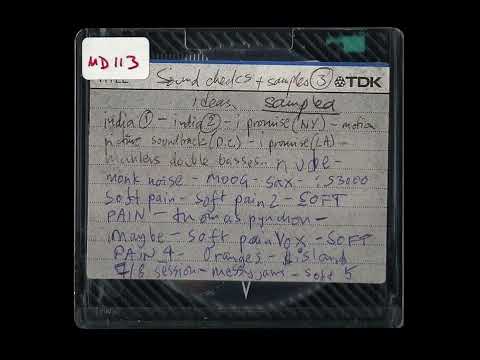 MD 113
TITLE Sound checks + samples ③ TDK
ideas sampled
india ① - india ② - i promise (NY) - motion
picture soundtrack (D.C.) - i promise (LA) -
mahlers double basses.. nude -
monk noise - MOOG - sax - S3000
soft pain - soft pain 2 - SOFT
PAIN - thomas pynchon -
maybe - soft pain Vox - SOFT
PAIN 4 - Oranges - island
7/8 session - messy jams - soft 5
V